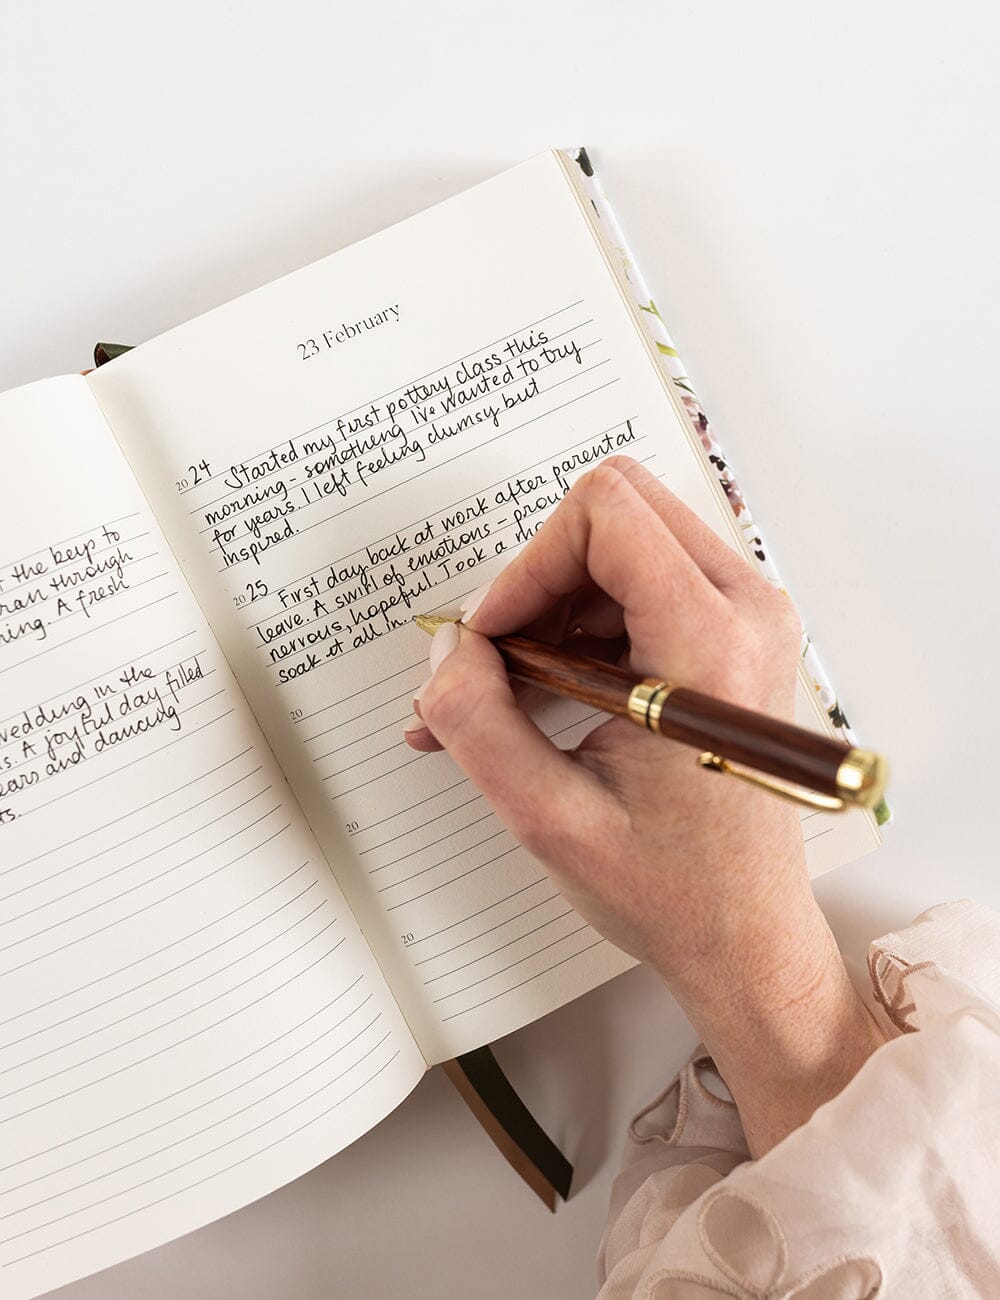 the keys to
ran through
ning. A fresh
wedding in the
s. A joyful day filled
ears and dancing
ts.
23 February
2024 Started my first pottery class this
morning - something I've wanted to try
for years. I left feeling clumsy but
inspired.
2025 First day back at work after parental
leave. A swirl of emotions - proud
nervous, hopeful. Took a mo
soak it all in.
20
20
20